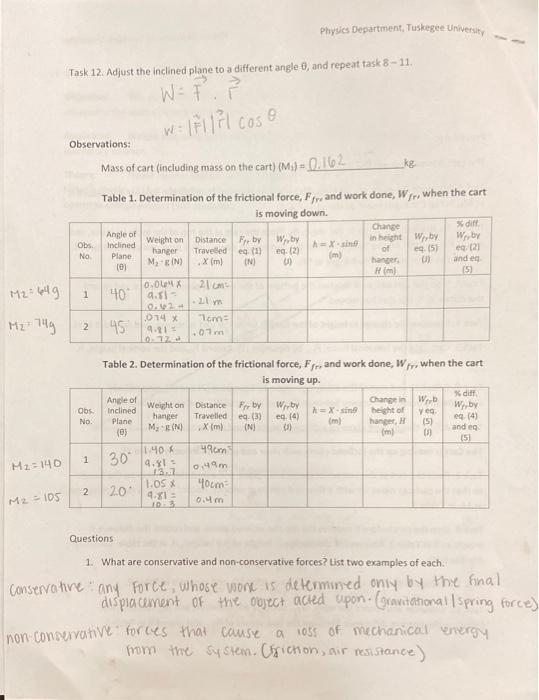 Physics Department, Tuskegee University
Task 12. Adjust the inclined plane to a different angle θ, and repeat task 8 – 11.
W = F⃗ . r⃗
W = |F⃗||r⃗| cos θ
Observations:
Mass of cart (including mass on the cart) (M₁) = 0.162 kg
Table 1. Determination of the frictional force, F_fr, and work done, W_fr, when the cart
is moving down.
Obs. No. | Angle of Inclined Plane (θ) | Weight on hanger M₂ · g (N) | Distance Travelled , X (m) | F_fr by eq. (1) (N) | W_fr by eq. (2) (J) | h = X · sinθ (m) | Change in height of hanger, H (m) | W_fr by eq. (5) (J) | % diff. W_fr by eq. (2) and eq. (5)
M2 = 64g | 1 | 40° | 0.064 x 9.81 = 0.62 | 21 cm = .21 m
M2 = 74g | 2 | 45° | .074 x 9.81 = 0.72 | 7cm = .07m
Table 2. Determination of the frictional force, F_fr, and work done, W_fr, when the cart
is moving up.
Obs. No. | Angle of Inclined Plane (θ) | Weight on hanger M₂ · g (N) | Distance Travelled , X (m) | F_fr by eq. (3) (N) | W_fr by eq. (4) (J) | h = X · sinθ (m) | Change in height of hanger, H (m) | W_fr b y eq. (5) (J) | % diff. W_fr by eq. (4) and eq. (5)
M2 = 140 | 1 | 30° | 1.40 x 9.81 = 13.7 | 49cm = 0.49m
M2 = 105 | 2 | 20° | 1.05 x 9.81 = 10.3 | 40cm = 0.4m
Questions
1. What are conservative and non-conservative forces? List two examples of each.
Conservative: any force, whose work is determined only by the final
displacement of the object acted upon. (gravitational | spring force)
non-conservative: forces that cause a loss of mechanical energy
from the system. (friction, air resistance)